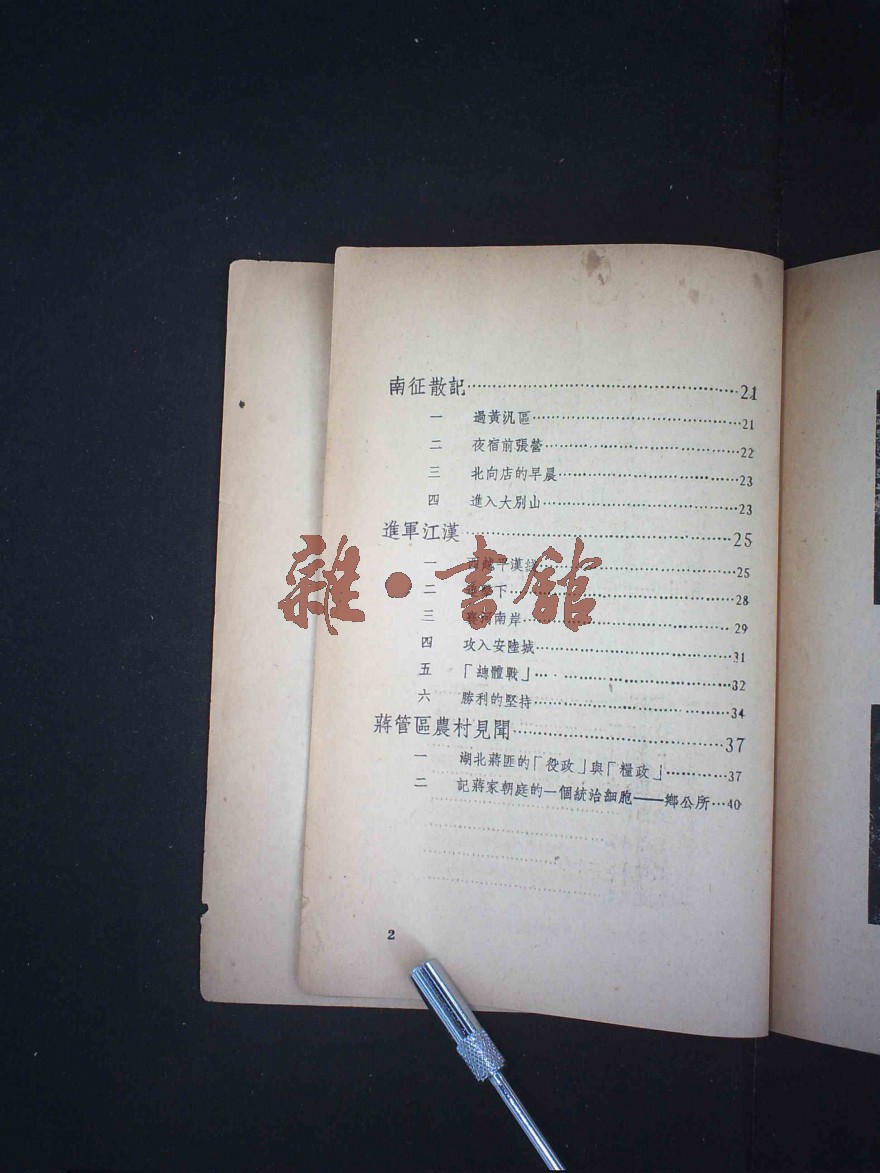 南征散記……21
一 過黃汎區……21
二 夜宿前張營……22
三 北向店的早晨……23
四 進入大別山……23
進軍江漢……25
一 西越平漢線……25
二 下……28
三 襄河南岸……29
四 攻入安陸城……31
五 「總體戰」……32
六 勝利的堅持……34
蔣管區農村見聞……37
一 湖北蔣匪的「役政」與「糧政」……37
二 記蔣家朝庭的一個統治細胞——鄉公所…40
2
雜·書館